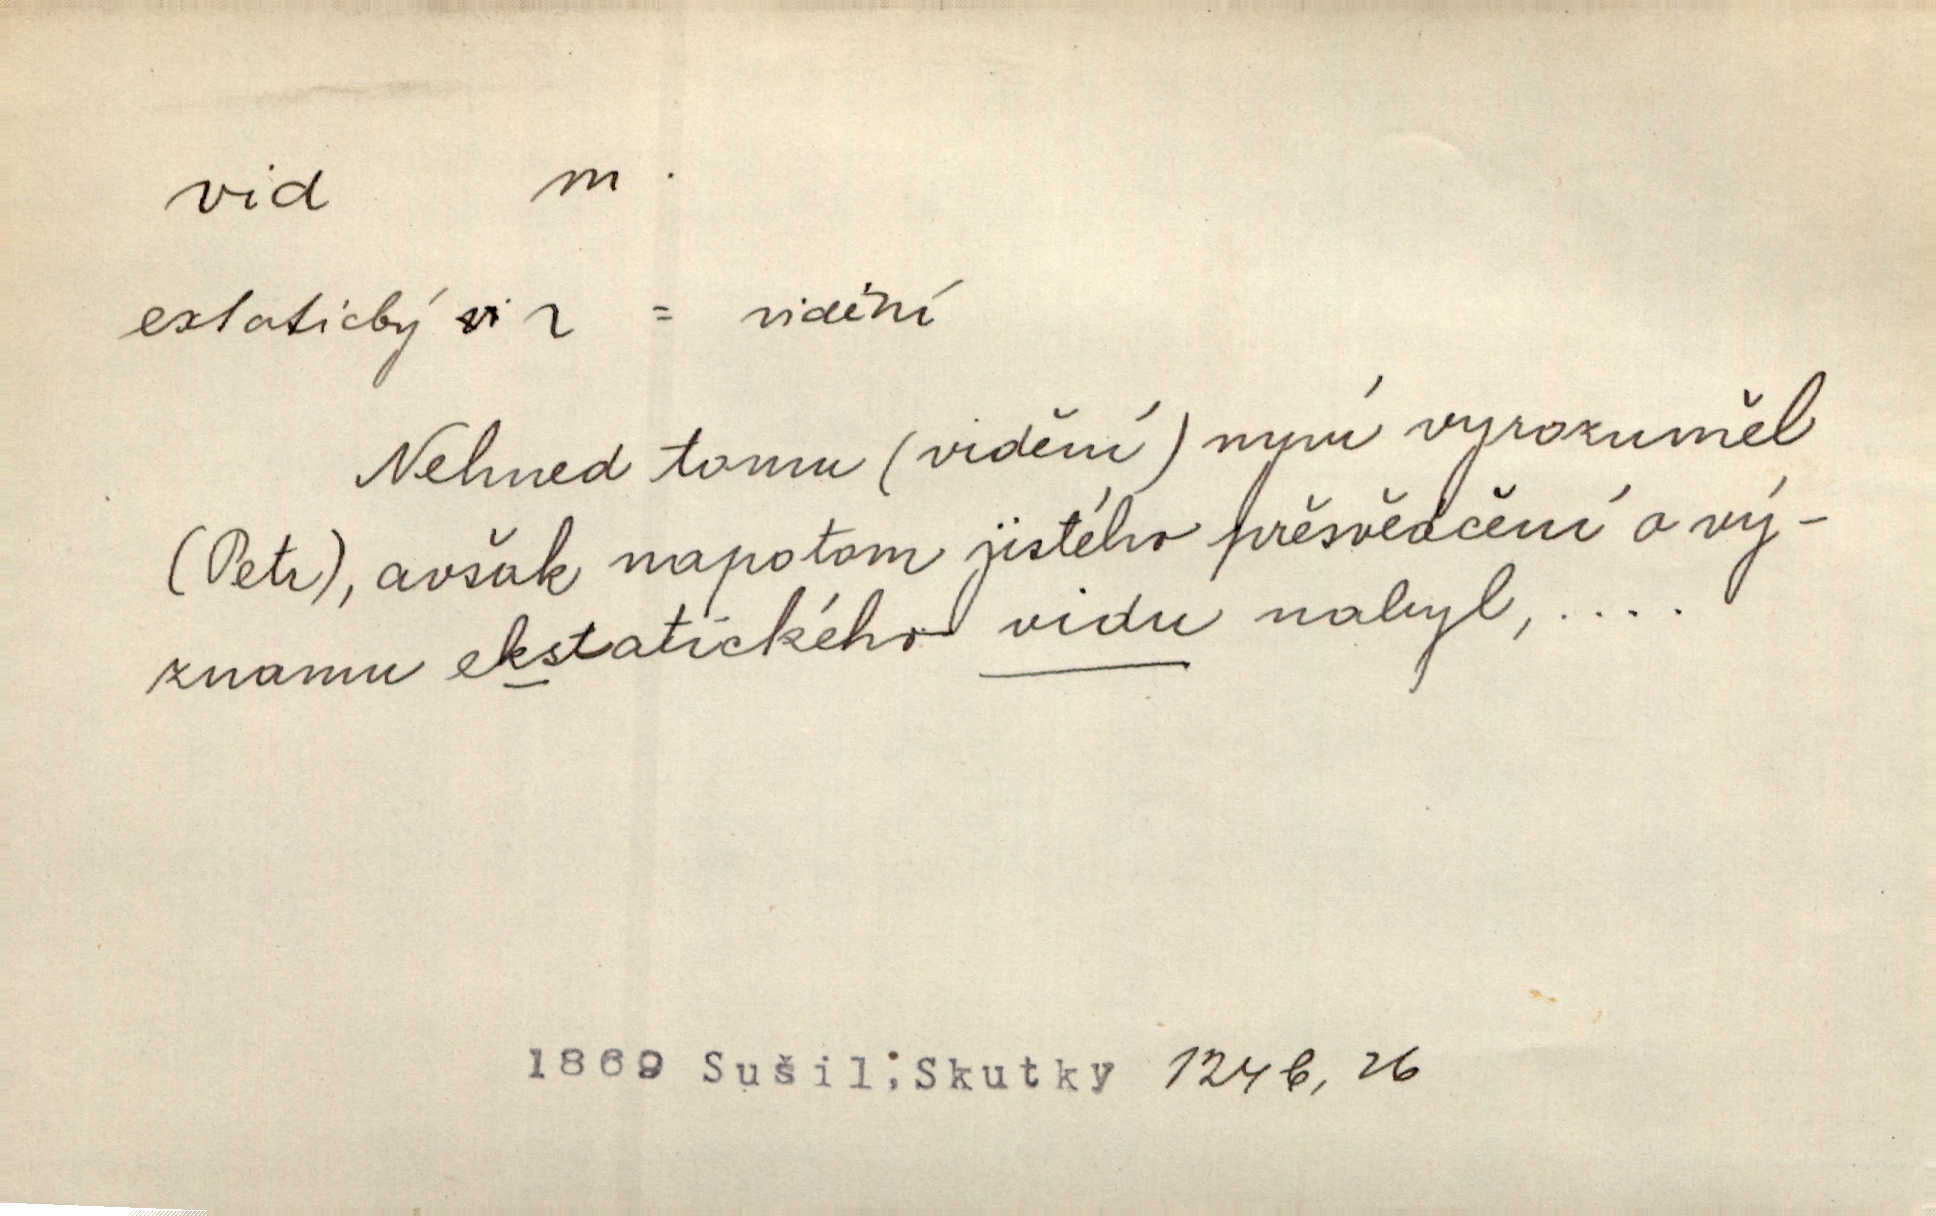 vid m.
extatický vi = vidění
Nehned tomu (vidění) nyní vyrozuměl
(Petr), avšak napotom jistého přěsvědčění o vý-
znamu ekstatického vidu nabyl, ....
1869 Sušil;Skutky 124 b, 26